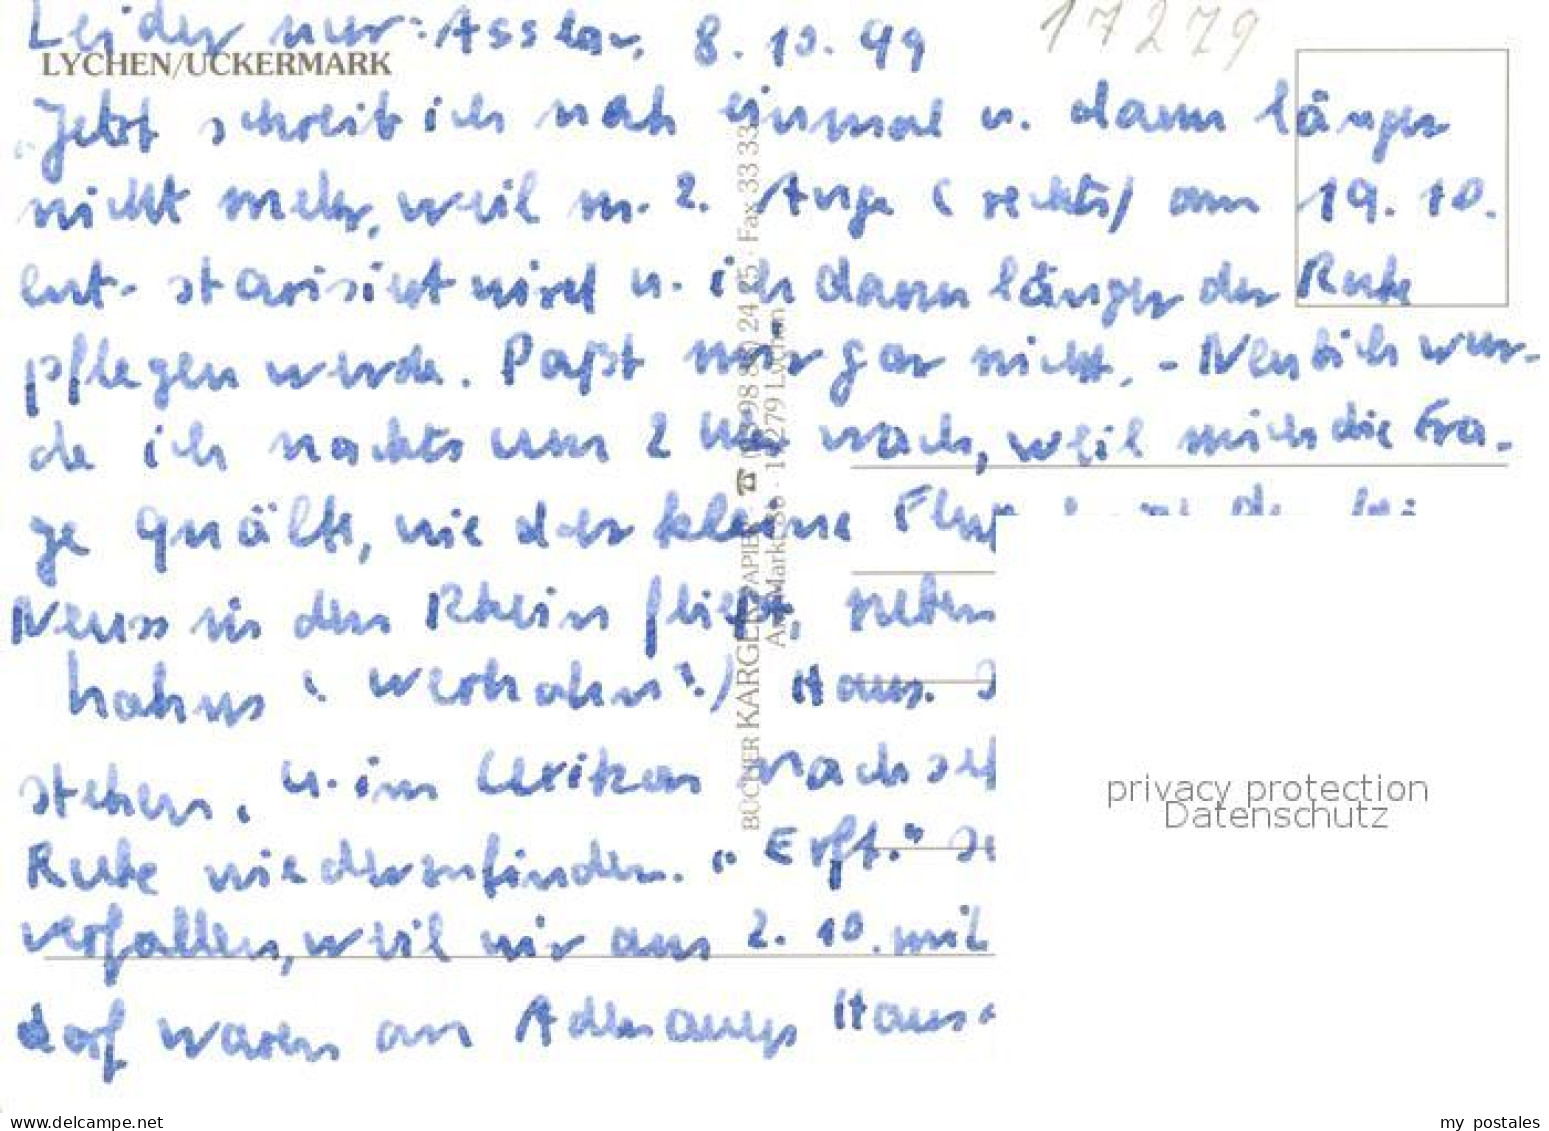 Leider nur: Asslar, 8.10.99
17279
LYCHEN/UCKERMARK
Jetzt schreib ich noch einmal u. dann länger
nicht mehr, weil m. 2. Auge (rechts) am 19.10.
ent-starisiert wird u. ich dann länger der Ruhe
pflegen werde. Paßt mir gar nicht. - Neulich wur-
de ich nachts um 2 Uhr wach, weil mich die Fra-
ge quälte, wie der kleine
Neuss in den Rhein fließt, neben
hahns (Werhahn?) Haus.
stehen. u. im Lexikon
Ruhe wiederzufinden. "Erft."
verfallen, weil wir am 2.10. mit
dorf waren an Adenauers Haus
BÜCHER KARGER PAPIER · ☎ 24 25 · Fax 33 33
Am Markt · 17279 Lychen
privacy protection
Datenschutz
www.delcampe.net
my postales